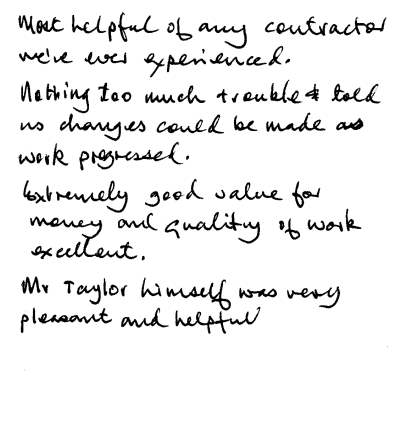 Most helpful of any contractor
we've ever experienced.
Nothing too much trouble & told
us changes could be made as
work progressed.
Extremely good value for
money and quality of work
excellent.
Mr Taylor himself was very
pleasant and helpful